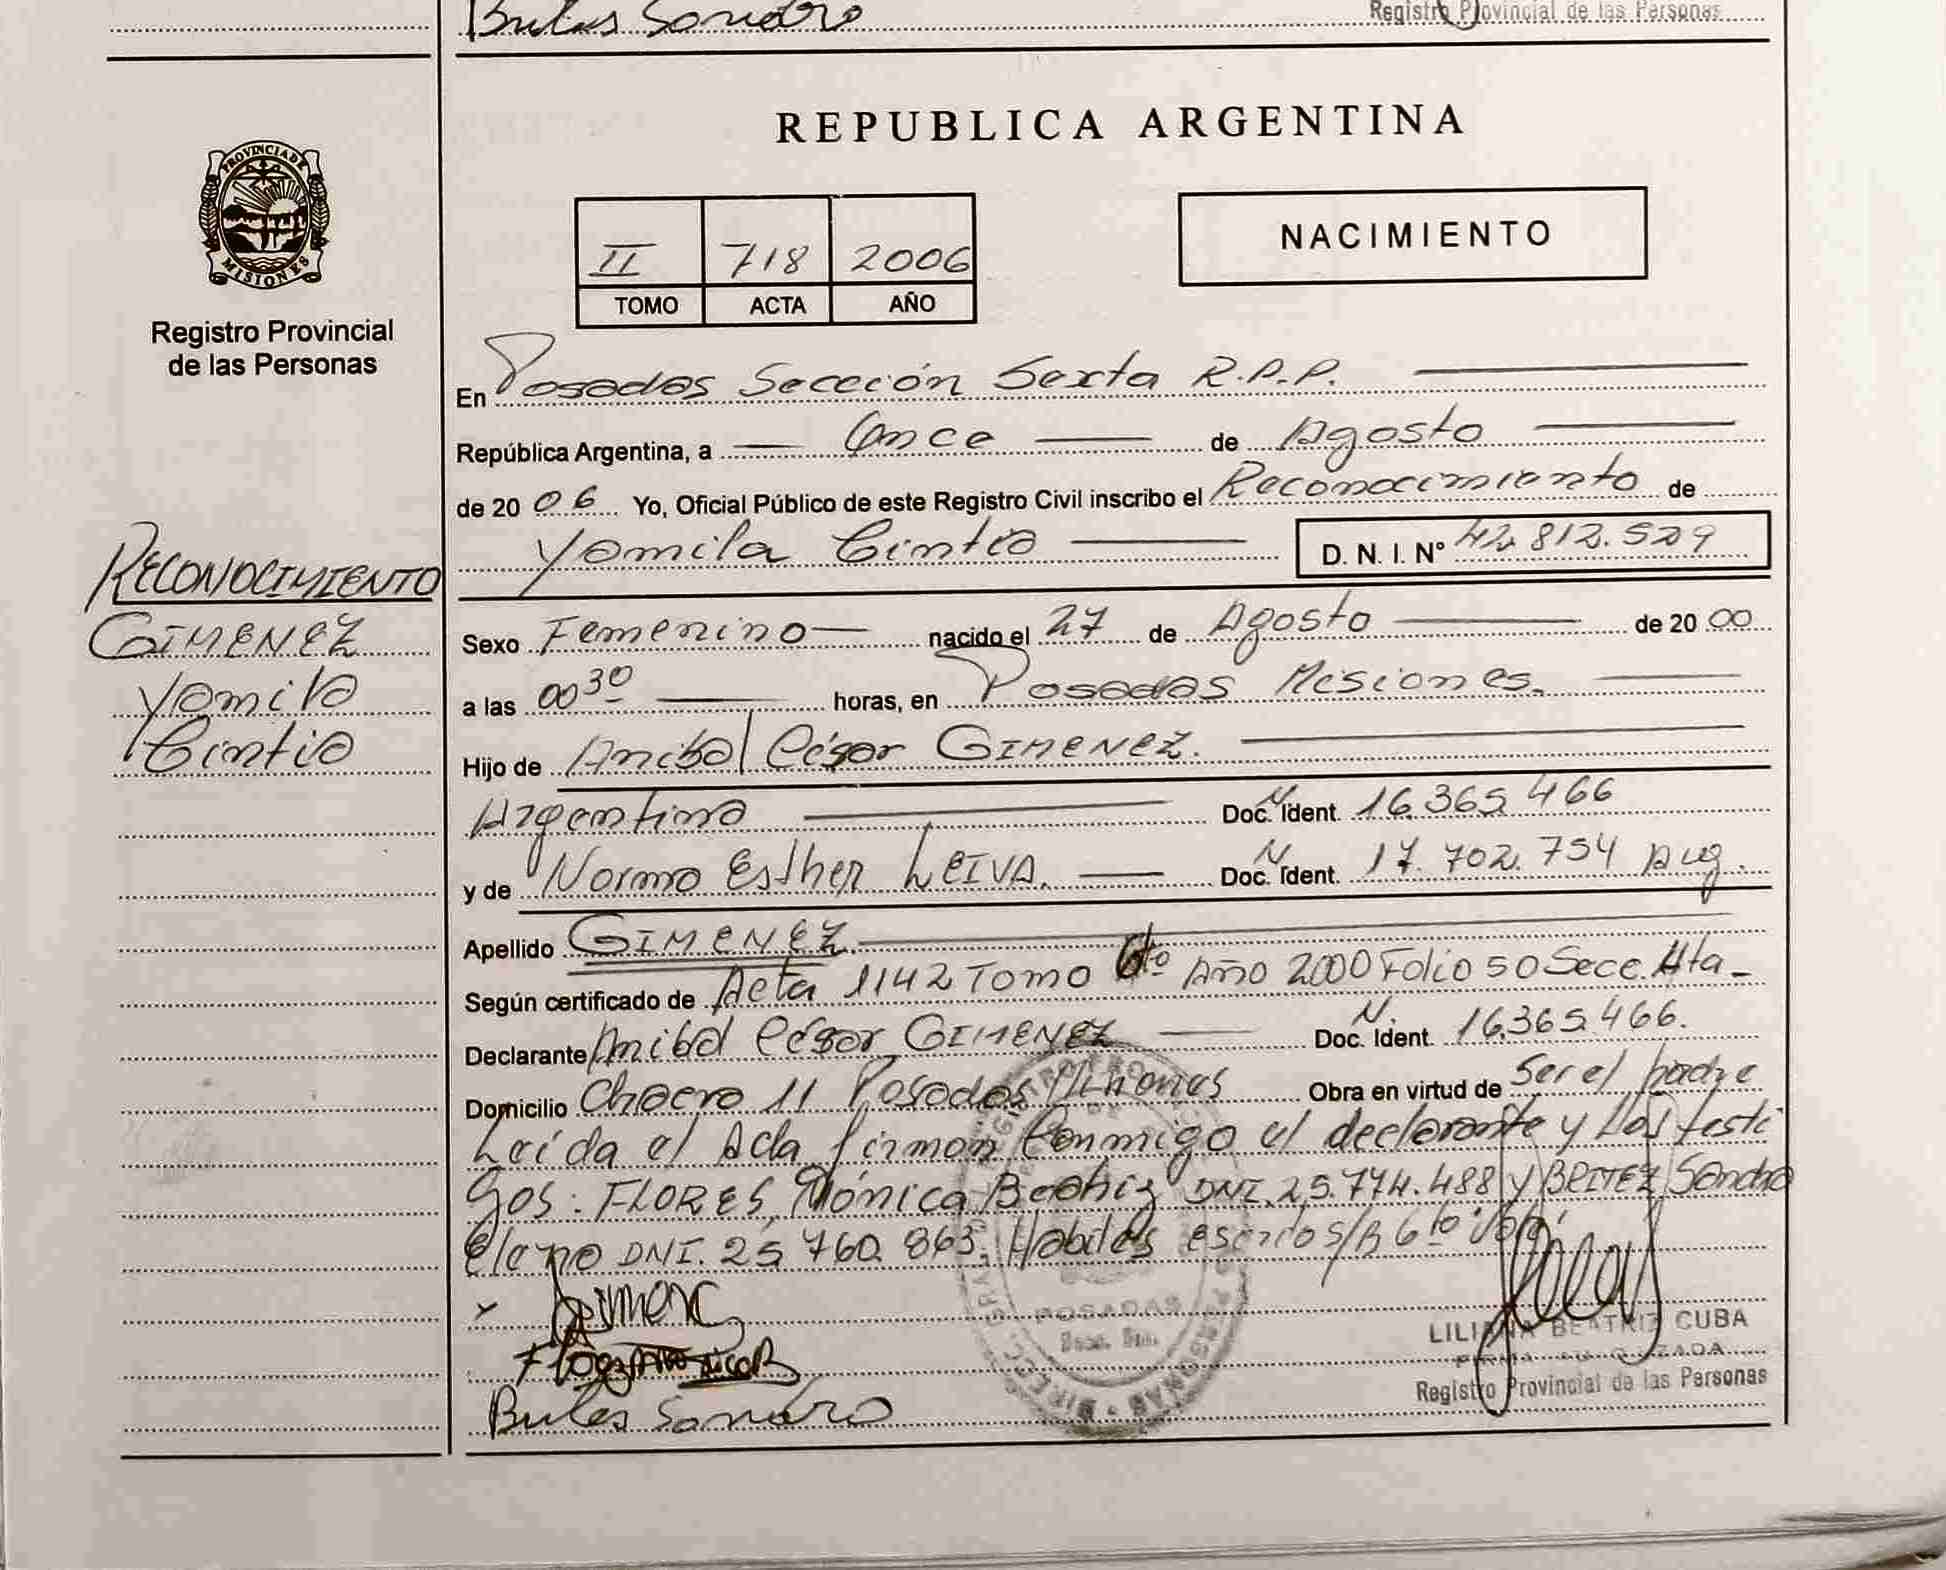 Registro Provincial de las Personas
REPUBLICA ARGENTINA
PROVINCIA DE
MISIONES
Registro Provincial
de las Personas
NACIMIENTO
II 718 2006
TOMO ACTA AÑO
En Posadas Sección Sexta R.P.P.
República Argentina, a Once de Agosto
de 20 06 Yo, Oficial Público de este Registro Civil inscribo el Reconocimiento de
Yamila Cintia D. N. I. N° 42.812.529
RECONOCIMIENTO
GIMENEZ
Yamila
Cintia
Sexo Femenino nacido el 27 de Agosto de 20 00
a las 00 30 horas, en Posadas Misiones.
Hijo de Anibal César GIMENEZ.
Argentina Doc. Ident. 16.365.466
y de Norma Esther LEIVA. Doc. Ident. 17.702.754 Arg.
Apellido GIMENEZ.
Según certificado de Acta 1142 Tomo 6to Año 2000 Folio 50 Secc. 4ta
Declarante Anibal César GIMENEZ Doc. Ident. 16.365.466.
Domicilio Chacra 11 Posadas Misiones Obra en virtud de Ser el padre
Leída el Acta firman Conmigo el declarante y los testi
gos: FLORES, Mónica Beatriz DNI. 25.774.488 y BRITEZ Sandra
Elena DNI. 25.760.863. Habiles
POSADAS
LILIANA BEATRIZ CUBA
FIRMA AUTORIZADA
Registro Provincial de las Personas